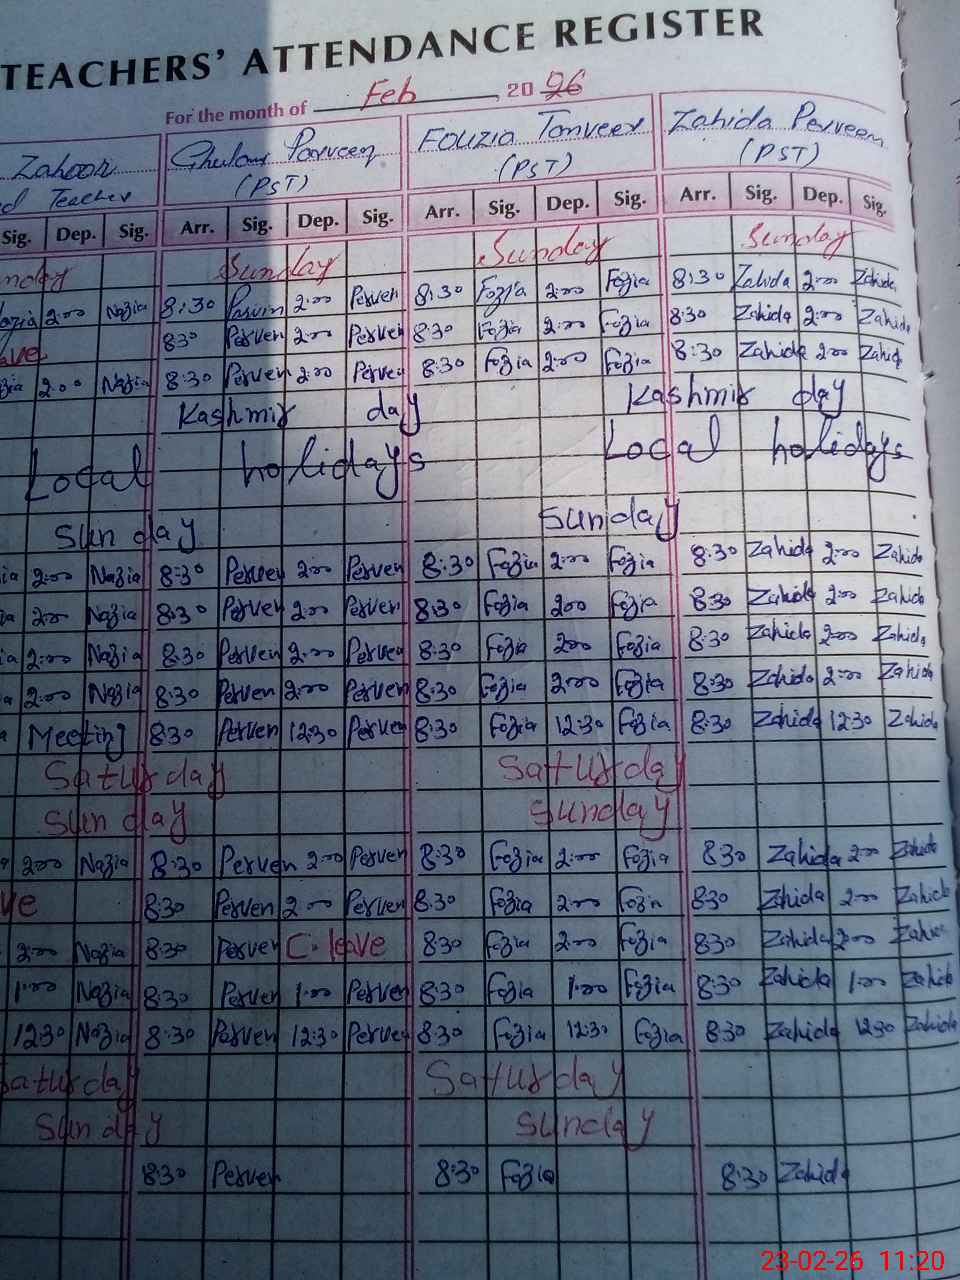 TEACHERS' ATTENDANCE REGISTER
For the month of Feb, 2026
Zahoor Ghulam Parveen Fouzia Tanveer Zahida Perveen
Teacher (PST) (PST) (PST)
Sig. Dep. Sig. Arr. Sig. Dep. Sig. Arr. Sig. Dep. Sig. Arr. Sig. Dep. Sig.
Sunday Sunday Sunday
2:00 Nazia 8:30 Parvin 2:00 Perven 8:30 Fozia 2:00 Fozia 8:30 Zahida 2:00 Zahida
830 Perven 2:00 Perven 8:30 Fozia 2:00 Fozia 8:30 Zahida 2:00 Zahida
2:00 Nazia 8:30 Perven 2:00 Perven 8:30 Fozia 2:00 Fozia 8:30 Zahida 200 Zahid
Kashmir day Kashmir day
Local holidays Local holidays
Sunday Sunday
2:00 Nazia 8:30 Perven 2:00 Perven 8:30 Fozia 2:00 Fozia 8:30 Zahida 2:00 Zahida
2:00 Nazia 8:30 Perven 2:00 Perven 8:30 Fozia 200 Fozia 8:30 Zahida 2:00 Zahida
2:00 Nazia 8:30 Perven 2:00 Perven 8:30 Fozia 200 Fozia 8:30 Zahida 2:00 Zahida
2:00 Nazia 8:30 Perven 2:00 Perven 8:30 Fozia 2:00 Fozia 8:30 Zahida 2:00 Zahida
Meeting 8:30 Perven 12:30 Perven 8:30 Fozia 12:30 Fozia 8:30 Zahida 12:30 Zahida
Saturday Saturday
Sunday Sunday
2:00 Nazia 8:30 Perven 2:00 Perven 8:30 Fozia 2:00 Fozia 8:30 Zahida 2:00 Zahida
8:30 Perven 2:00 Perven 8:30 Fozia 2:00 Fozia 8:30 Zahida 2:00 Zahida
2:00 Nazia 8:30 Perven C.leave 8:30 Fozia 2:00 Fozia 8:30 Zahida 2:00 Zahida
1:00 Nazia 8:30 Perven 1:00 Perven 8:30 Fozia 1:00 Fozia 8:30 Zahida 1:00 Zahida
1230 Nazia 8:30 Perven 12:30 Perven 8:30 Fozia 12:30 Fozia 8:30 Zahida 1230 Zahida
Saturday Saturday
Sunday Sunday
8:30 Perven 8:30 Fozia 8:30 Zahida
23-02-26 11:20